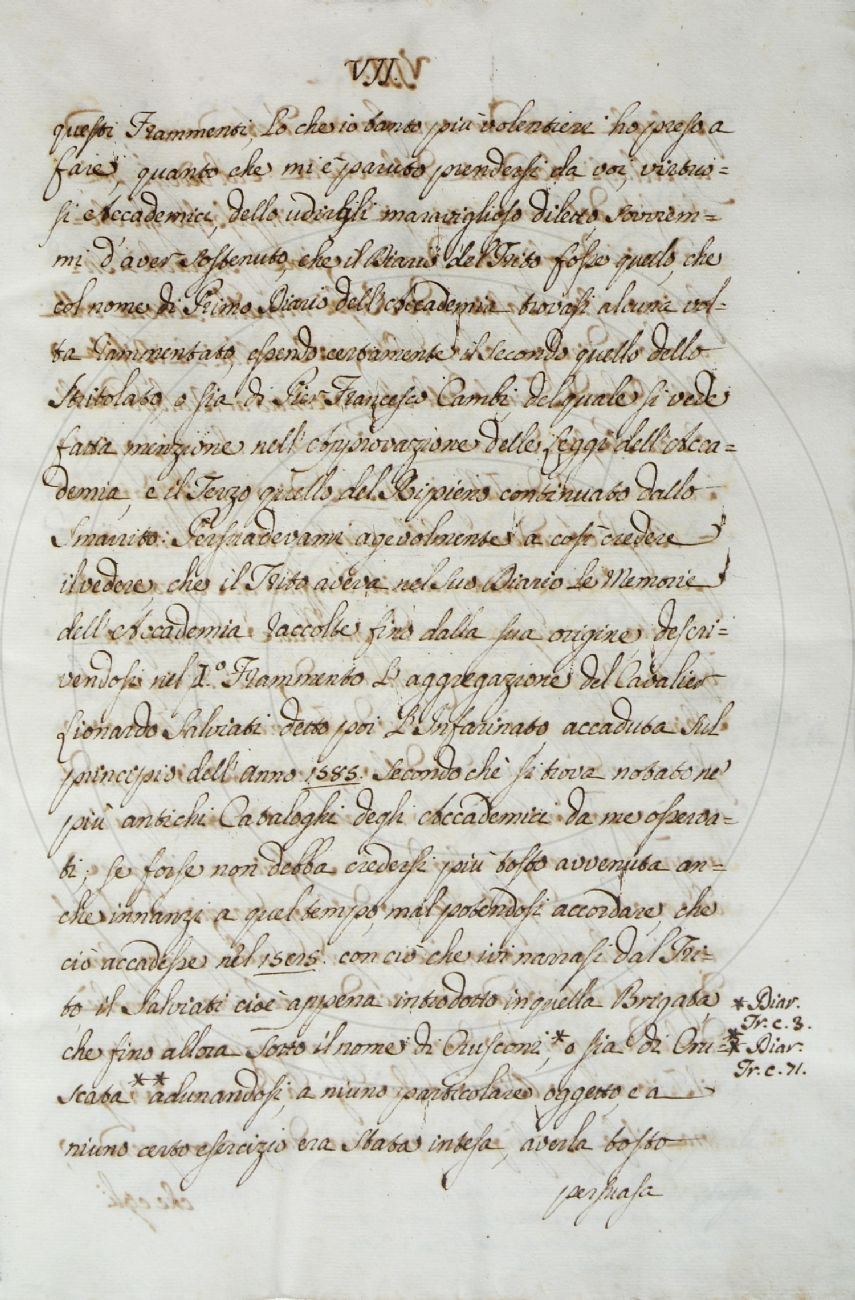 VII.
questi Frammenti, Lo che io tanto più volentieri ho preso a
fare, quanto che mi è paruto prendersi da voi, virtuo=
si Accademici, dello udirgli maraviglioso diletto, Sovvien=
mi d'aver sostenuto, che il Diario del Trito fosse quello, che
col nome di Primo Diario dell'Accademia trovasi alcuna vol=
ta rammentato, essendo certamente il secondo quello dello
Stritolato, o sia di Pier Francesco Cambi, del quale si vede
fatta menzione nell'Approvazione delle Leggi dell'Acca=
demia, e il Terzo quello del Ripieno continuato dallo
Smarrito: Persuadevami agevolmente a così credere
il vedere, che il Trito aveva nel suo Diario Le Memorie
dell'Accademia raccolte fino dalla sua origine, descri=
vendosi nel I.º Frammento L'aggregazione del Cavalier
Lionardo Salviati detto poi L'Infarinato accaduta sul
principio dell'anno 1585. secondo che si trova notato ne'
più antichi Cataloghi degli Accademici da me osserva=
ti; se forse non debba credersi più tosto avvenuta an=
che innanzi a quel tempo, mal potendosi accordare, che
ciò accadesse nel 1585. con ciò che ivi narrasi dal Tri=
to il Salviati cioè appena introdotto in quella Brigata,
che fino allora sotto il nome di Crusconi,* o sia di Cru=
scata ** adunandosi, a niuno particolare oggetto, e a
niuno certo esercizio era stata intesa, averla tosto
persuasa
* Diar.
Tr. c. 3.
** Diar.
Tr. c. 71.